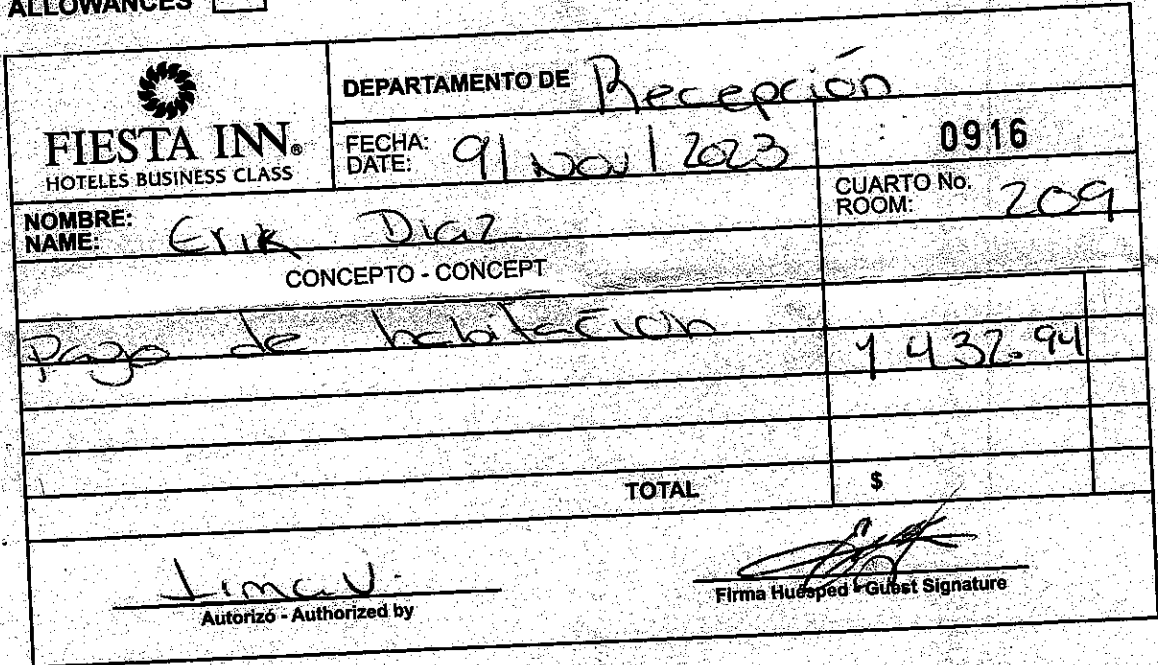 ALLOWANCES
FIESTA INN®
HOTELES BUSINESS CLASS
DEPARTAMENTO DE Recepción
FECHA: DATE: 9 | Nov | 2023
0916
NOMBRE: NAME: Erik Diaz
CUARTO No. ROOM: 209
CONCEPTO - CONCEPT
Pago de habitación 1 432.94
TOTAL $
Lima V.
Autorizó - Authorized by
Firma Huésped - Guest Signature